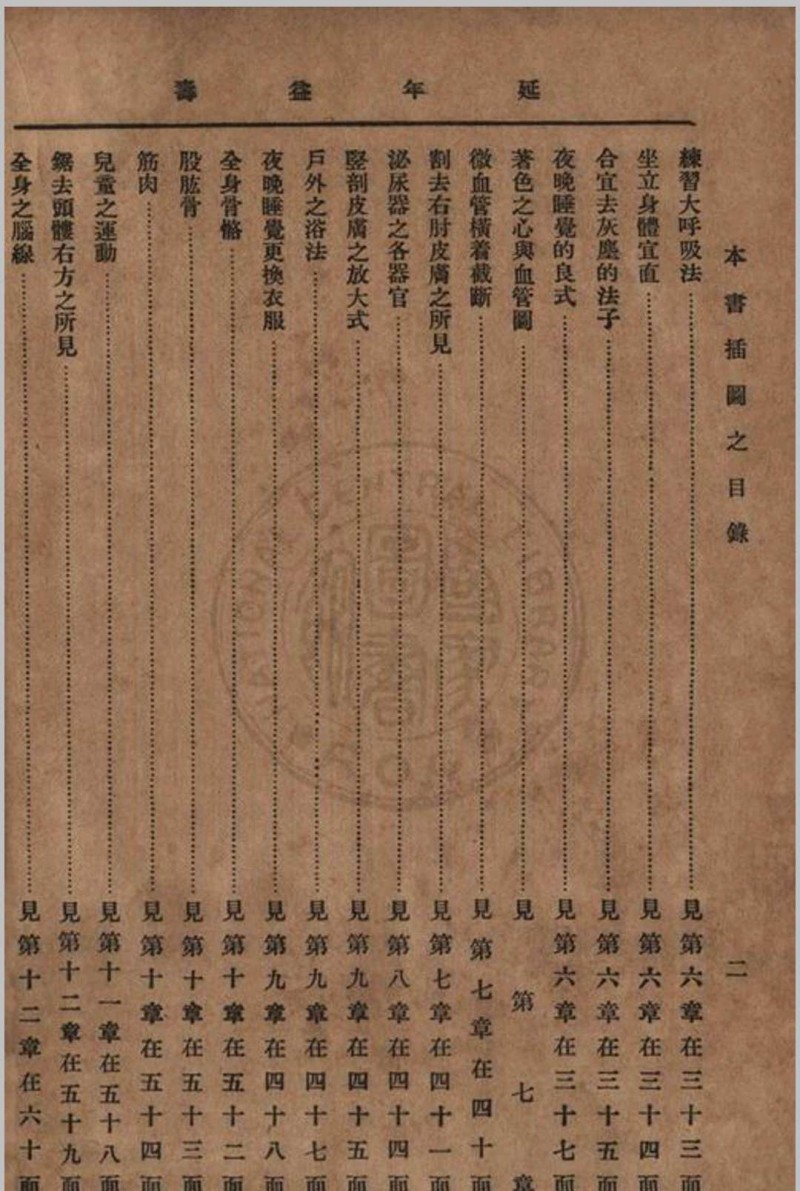 延年益壽
本書插圖之目錄
二
練習大呼吸法……見第六章在三十三面
坐立身體宜直……見第六章在三十四面
合宜去灰塵的法子……見第六章在三十五面
夜晚睡覺的良式……見第六章在三十七面
著色之心與血管圖……見第七章
微血管橫着截斷……見第七章在四十面
割去右肘皮膚之所見……見第七章在四十一面
泌尿器之各器官……見第八章在四十四面
竪剖皮膚之放大式……見第九章在四十五面
戶外之浴法……見第九章在四十七面
夜晚睡覺更換衣服……見第九章在四十八面
全身骨骼……見第十章在五十二面
股肱骨……見第十章在五十三面
筋肉……見第十章在五十四面
兒童之運動……見第十一章在五十八面
鋸去頭髏右方之所見……見第十二章在五十九面
全身之腦線……見第十二章在六十面
NATIONAL CENTRAL LIBRARY